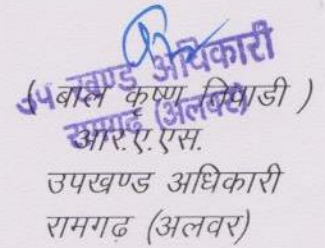 उप खण्ड अधिकारी
रामगढ़ (अलवर)
( बाल कृष्ण तिवाडी )
आर.ए.एस.
उपखण्ड अधिकारी
रामगढ़ (अलवर)